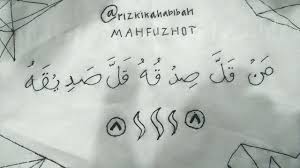 @rizkikahabibah
MAHFUZHOT
مَنْ قَلَّ صِدْقُهُ قَلَّ صَدِيْقُهُ